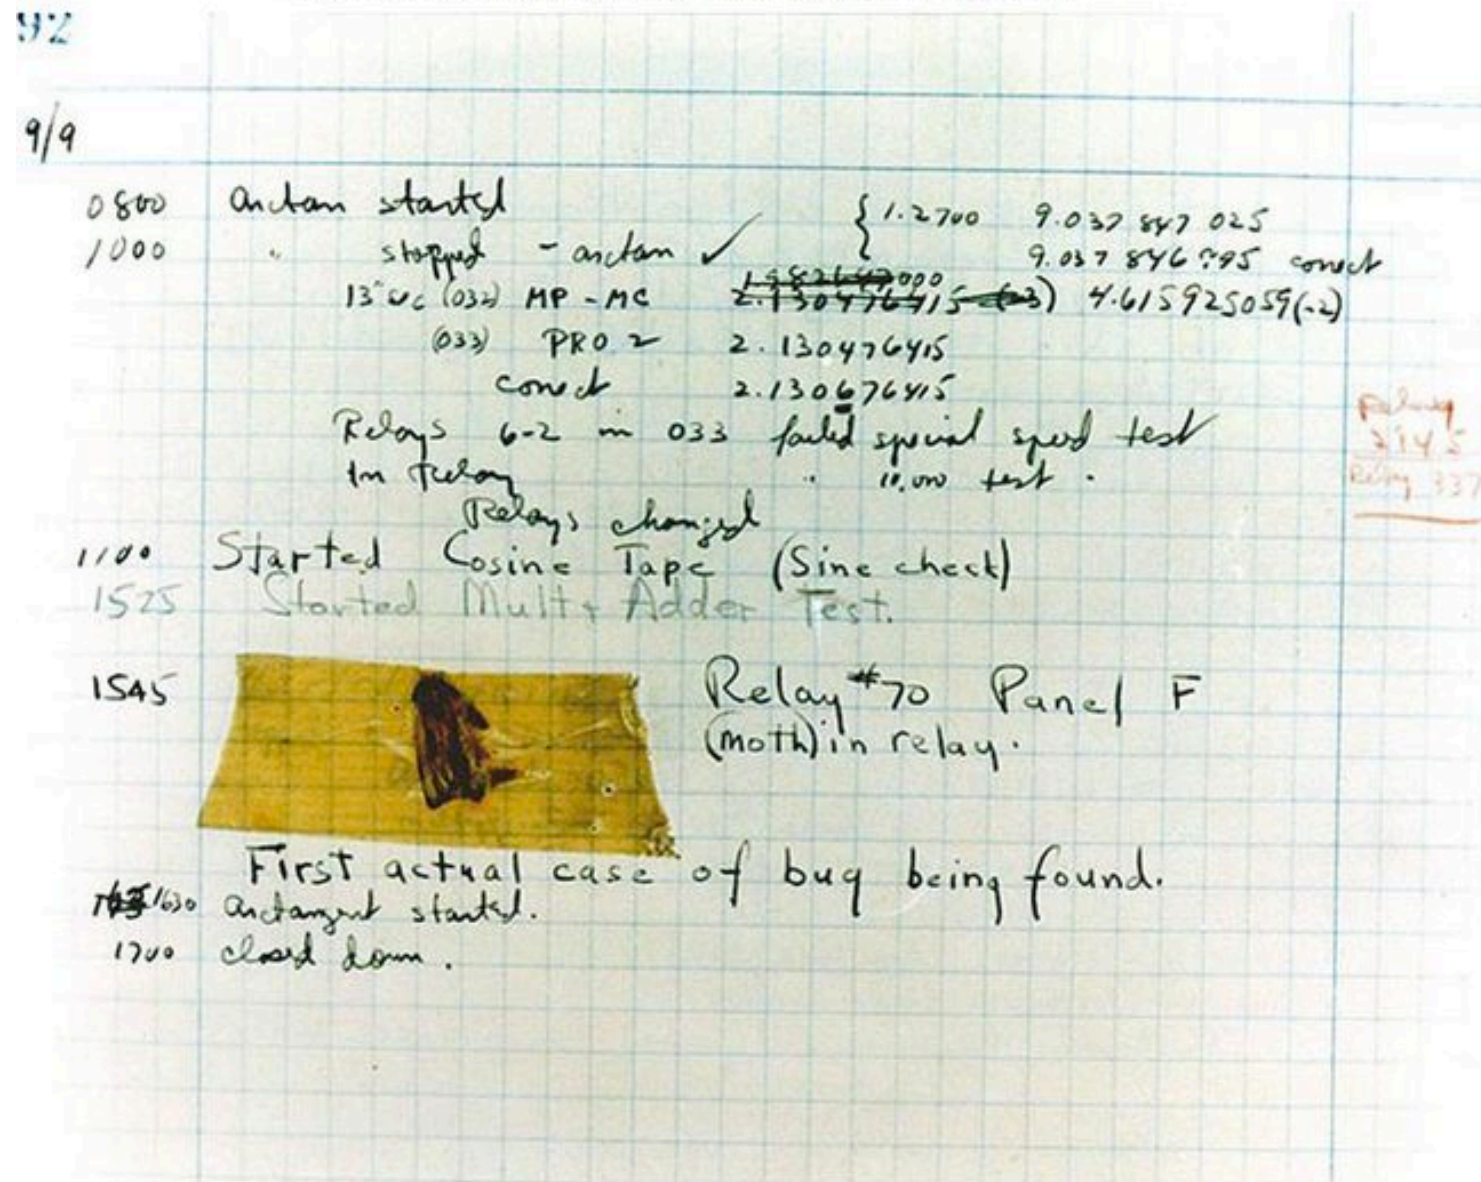 92
9/9
0800 arctan started { 1.2700 9.037 847 025
1000 " stopped - arctan ✓ 9.037 846 995 correct
13"uc (032) MP - MC 1.982647000
2.130476415 (-3) 4.615925059(-2)
(033) PRO 2 2.130476415
correct 2.130676415
Relays 6-2 in 033 failed special speed test
In Relay " 10.000 test .
Relays changed
Relay
2145
Relay 337
1100 Started Cosine Tape (Sine check)
1525 Started Mult+ Adder Test.
1545 Relay #70 Panel F
(moth) in relay.
First actual case of bug being found.
1630 arctangent started.
1700 closed down.